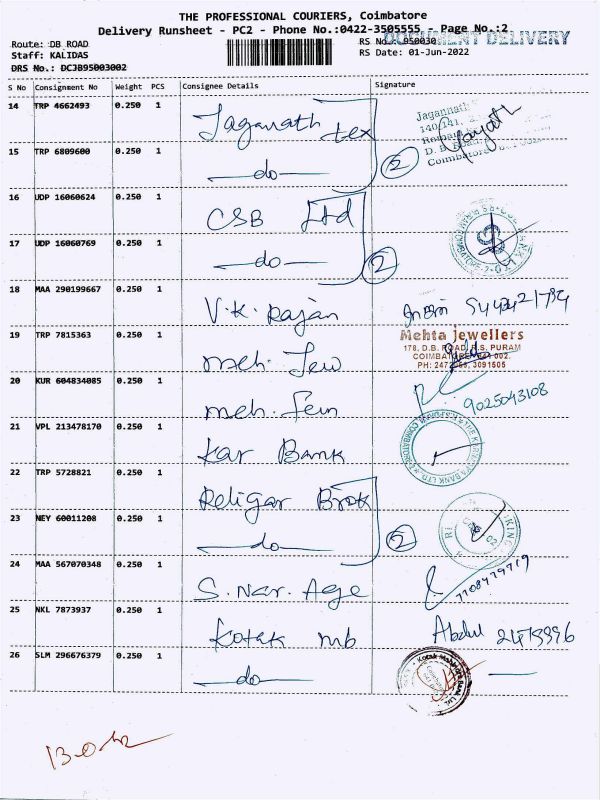 THE PROFESSIONAL COURIERS, Coimbatore
Delivery Runsheet - PC2 - Phone No.:0422-3505555 - Page No.:2
DOCUMENT DELIVERY
Route: DB ROAD
RS No.: 950030
Staff: KALIDAS
RS Date: 01-Jun-2022
DRS No.: DCJB95003002
S No Consignment No Weight PCS Consignee Details Signature
14 TRP 4662493 0.250 1 Jaganath tex
15 TRP 6809600 0.250 1 —do— 2
16 UDP 16060624 0.250 1 CSB Ltd
17 UDP 16060769 0.250 1 —do— 2
18 MAA 290199667 0.250 1 V.K. Rajan
19 TRP 7815363 0.250 1 meh. Jew
Mehta jewellers
178, D.B. ROAD, R.S. PURAM
COIMBATORE-641 002.
20 KUR 604834085 0.250 1 meh. Jew 9025043108
21 VPL 213478170 0.250 1 Kar Bank
22 TRP 5728821 0.250 1 Religar Brok
23 NEY 60011208 0.250 1 —do— 2
24 MAA 567070348 0.250 1 S. Nar. Age
25 NKL 7873937 0.250 1 Kotak mb Abdul
26 SLM 296676379 0.250 1 —do— —
Kotak Mahindra Bank Ltd.